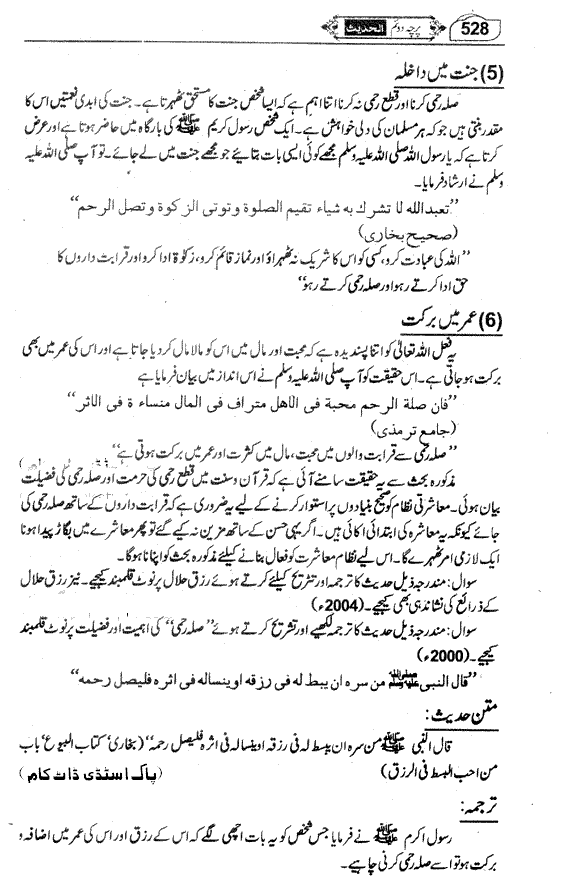 528 الحدیث پرچہ دوئم
(5) جنت میں داخلہ
صلہ رحمی کرنا اور قطع رحمی نہ کرنا اتنا اہم ہے کہ ایسا شخص جنت کا مستحق ٹھہرتا ہے۔ جنت کی ابدی نعمتیں اس کا
مقدر بنتی ہیں جو کہ ہر مسلمان کی دلی خواہش ہے۔ ایک شخص رسول کریم ﷺ کی بارگاہ میں حاضر ہوتا ہے اور عرض
کرتا ہے کہ یا رسول اللہ صلی اللہ علیہ وسلم مجھے کوئی ایسی بات بتائیے جو مجھے جنت میں لے جائے۔ تو آپ صلی اللہ علیہ
وسلم نے ارشاد فرمایا۔
”تعبدالله لا تشرك به شياء تقيم الصلوة وتوتى الزكوة وتصل الرحم“
(صحیح بخاری)
”اللہ کی عبادت کرو، کسی کو اس کا شریک نہ ٹھہراؤ اور نماز قائم کرو، زکوٰۃ ادا کرو اور قرابت داروں کا
حق ادا کرتے رہو اور صلہ رحمی کرتے رہو“
(6) عمر میں برکت
یہ فعل اللہ تعالیٰ کو اتنا پسندیدہ ہے کہ محبت اور مال میں اس کو مالا مال کر دیا جاتا ہے اور اس کی عمر میں بھی
برکت ہو جاتی ہے۔ اس حقیقت کو آپ صلی اللہ علیہ وسلم نے اس انداز میں بیان فرمایا ہے
”فان صلة الرحم محبة فى الأهل متراف فى المال منساء ة فى الأثر“
(جامع ترمذی)
”صلہ رحمی سے قرابت والوں میں محبت، مال میں کثرت اور عمر میں برکت ہوتی ہے“
مذکورہ بحث سے یہ حقیقت سامنے آئی ہے کہ قرآن و سنت میں قطع رحمی کی حرمت اور صلہ رحمی کی فضیلت
بیان ہوئی۔ معاشرتی نظام کو صحیح بنیادوں پر استوار کرنے کے لیے یہ ضروری ہے کہ قرابت داروں کے ساتھ صلہ رحمی کی
جائے کیونکہ یہ معاشرہ کی ابتدائی اکائی ہیں۔ اگر یہی حسن کے ساتھ مزین نہ کیے گئے تو پھر معاشرے میں بگاڑ پیدا ہونا
ایک لازمی امر ٹھہرے گا۔ اس لیے نظام معاشرت کو فعال بنانے کیلئے مذکورہ بحث کو اپنانا ہوگا۔
سوال: مندرجہ ذیل حدیث کا ترجمہ اور تشریح کیلئے کرتے ہوئے رزق حلال پر نوٹ قلمبند کیجیے۔ نیز رزق حلال
کے ذرائع کی نشاندہی بھی کیجیے۔ (2004ء)
سوال: مندرجہ ذیل حدیث کا ترجمہ لکھیے اور تشریح کرتے ہوئے ”صلہ رحمی“ کی اہمیت اور فضیلت پر نوٹ قلمبند
کیجیے۔ (2000ء)
”قال النبی ﷺ من سره ان يبط له فى رزقه اوينساله فى اثره فليصل رحمه“
متن حدیث:
قال النبی ﷺ من سرہ ان یبسط لہ فی رزقہ اوینسا لہ فی اثرہ فلیصل رحمہ“ (بخاری‘ کتاب البیوع‘ باب
من احب البسط فی الرزق) (پاک اسٹڈی ڈاٹ کام)
ترجمہ:
رسول اکرم ﷺ نے فرمایا جس شخص کو یہ بات اچھی لگے کہ اس کے رزق اور اس کی عمر میں اضافہ و
برکت ہو تو اسے صلہ رحمی کرنی چاہیے۔